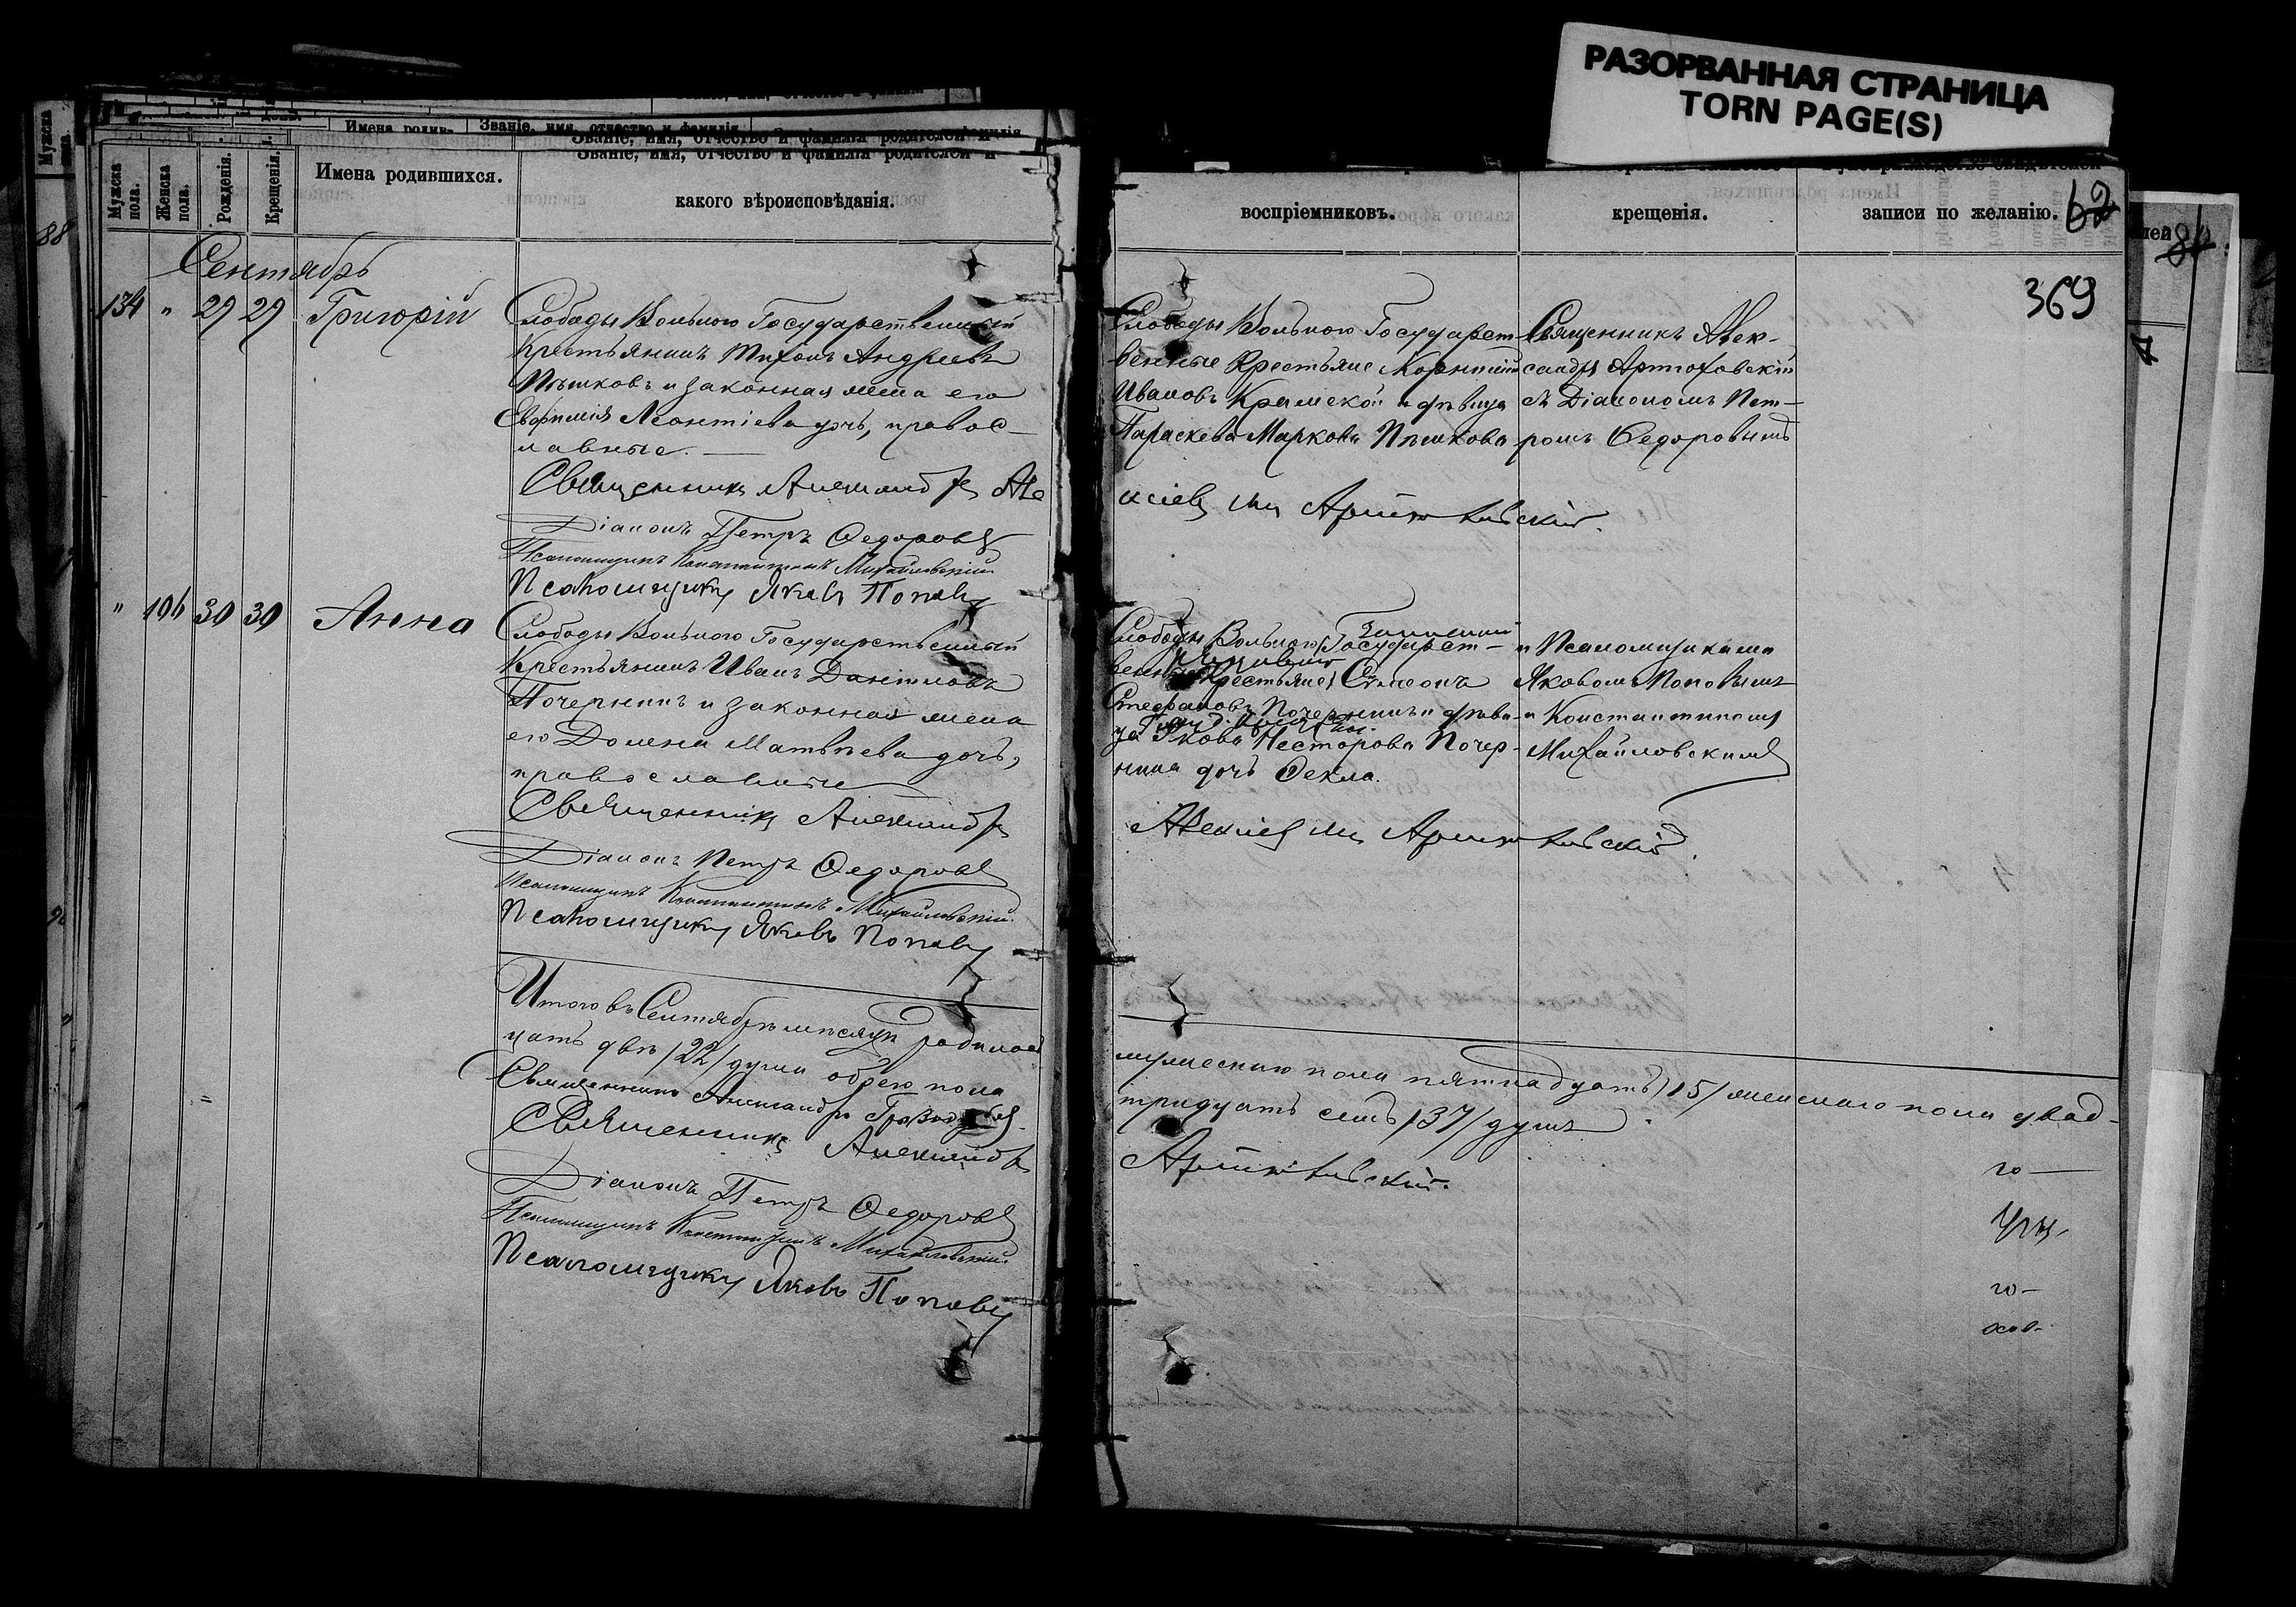 РАЗОРВАННАЯ СТРАНИЦА
TORN PAGE(S)
Званіе, имя, отчество и фамилія родителей и
Мужска пола.
Женска пола.
Рожденія.
Крещенія.
Имена родившихся.
какого вѣроисповѣданія.
воспріемниковъ.
крещенія.
записи по желанію.
62
369
Сентябрь
134 " 29 29 Григорій
Слободы Вольного Государственный
Крестьянинъ Тихонъ Андреевъ
Пѣшковъ и законная жена его
Евфимія Леонтіева дочь, правос-
лавные.
Священникъ Александръ Але
Діаконъ Петръ Ѳедоровъ
Псаломщикъ Константинъ Михайловскій
Псаломщикъ Яковъ Поповъ
Слободы Вольного Государст-
венные Крестьяне Корнилій
Ивановъ Крамской и дѣвица
Параскева Маркова Пѣшкова
Священникъ Алек-
сандръ Артюховскій
съ Діакономъ Пет-
ромъ Ѳедоровымъ
Артюховскій.
" 106 30 30 Анна
Слободы Вольного Государственный
Крестьянинъ Иванъ Даніиловъ
Почернинъ и законная жена
его Домена Матвѣева дочь,
православные
Священникъ Александръ
Діаконъ Петръ Ѳедоровъ
Псаломщикъ Константинъ Михайловскій
Псаломщикъ Яковъ Поповъ
Слободы Вольного Государст-
венные Крестьяне Сѵмеонъ
Стефановъ Почернинъ и дѣви-
ца Якова Несторова Почер-
нина дочь Ѳекла.
и Псаломщиками
Яковомъ Поповымъ
и Константиномъ
Михайловскимъ
Артюховскій.
Итого въ Сентябрѣ мѣсяцѣ родилось
мужескаго пола пятнадцать /15/ женскаго пола двад-
цать двѣ /22/ души обоего пола
тридцать семь /37/ душъ
Священникъ Александръ
Священникъ Александръ
Артюховскій.
Діаконъ Петръ Ѳедоровъ
Псаломщикъ Константинъ Михайловскій
Псаломщикъ Яковъ Поповъ